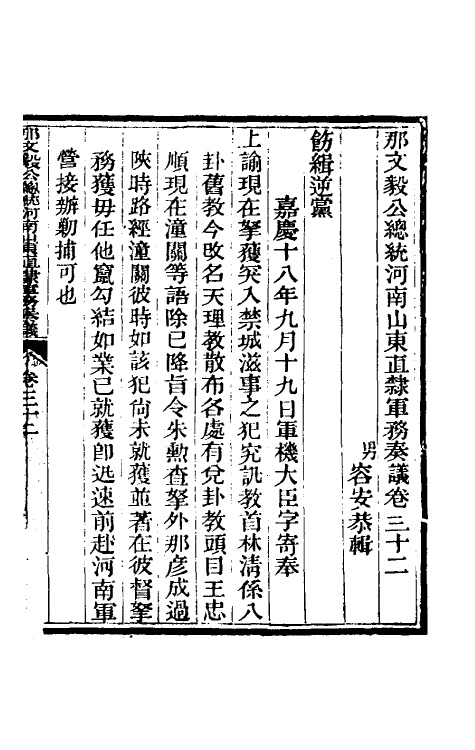 那文毅公總統河南山東直隸軍務奏議卷三十二
男容安恭輯
飭緝逆黨
嘉慶十八年九月十九日軍機大臣字寄奉
上諭現在拏獲突入禁城滋事之犯究訊教首林淸係八
卦舊教今改名天理教散布各處有兌卦教頭目王忠
順現在潼關等語除已降旨令朱勳查拏外那彦成過
陜時路經潼關彼時如該犯尙未就獲並著在彼督拏
務獲毋任他竄勾結如業已就獲卽迅速前赴河南軍
營接辦勦捕可也
那文毅公總統河南山東直隸軍務奏議
卷三十二